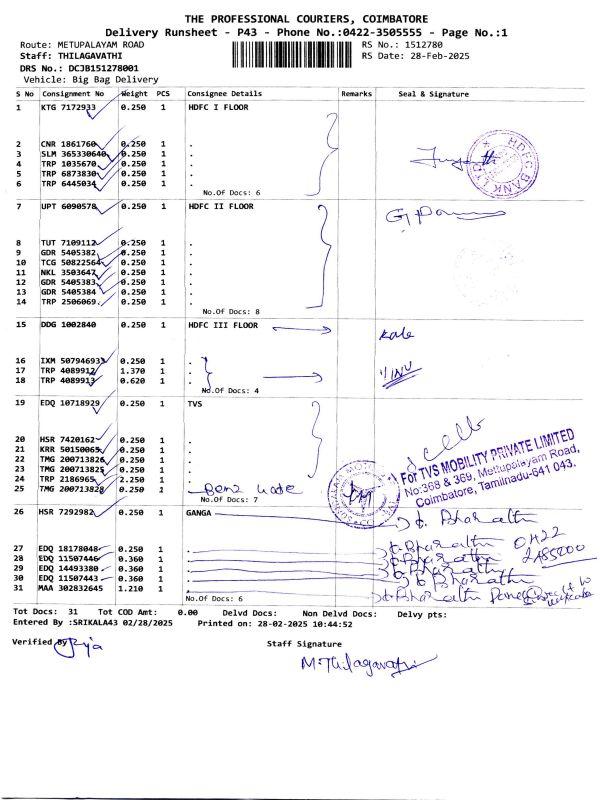 THE PROFESSIONAL COURIERS, COIMBATORE
Delivery Runsheet - P43 - Phone No.:0422-3505555 - Page No.:1
Route: METUPALAYAM ROAD RS No.: 1512780
Staff: THILAGAVATHI RS Date: 28-Feb-2025
DRS No.: DCJB151278001
Vehicle: Big Bag Delivery
S No Consignment No Weight PCS Consignee Details Remarks Seal & Signature
1 KTG 7172933 0.250 1 HDFC I FLOOR
2 CNR 1861760 0.250 1 .
3 SLM 365330640 0.250 1 .
4 TRP 1035670 0.250 1 .
5 TRP 6873830 0.250 1 .
6 TRP 6445034 0.250 1 .
HDFC BANK LTD
No.Of Docs: 6
7 UPT 6090578 0.250 1 HDFC II FLOOR
8 TUT 7109112 0.250 1 .
9 GDR 5405382 0.250 1 .
10 TCG 50822564 0.250 1 .
11 NKL 3503647 0.250 1 .
12 GDR 5405383 0.250 1 .
13 GDR 5405384 0.250 1 .
14 TRP 2506069 0.250 1 .
No.Of Docs: 8
15 DDG 1002840 0.250 1 HDFC III FLOOR
16 IXM 507946933 0.250 1 .
17 TRP 4089912 1.370 1 .
18 TRP 4089913 0.620 1 .
No.Of Docs: 4
19 EDQ 10718929 0.250 1 TVS
20 HSR 7420162 0.250 1 .
21 KRR 50150065 0.250 1 .
22 TMG 200713826 0.250 1 .
23 TMG 200713825 0.250 1 .
24 TRP 2186965 2.250 1 .
25 TMG 200713828 0.250 1
No.Of Docs: 7
For TVS MOBILITY PRIVATE LIMITED
No:368 & 369, Mettupalayam Road,
Coimbatore, Tamilnadu-641 043.
26 HSR 7292982 0.250 1 GANGA
Bharathi
27 EDQ 18178048 0.250 1 . Bharathi 0422
28 EDQ 11507446 0.360 1 . Bharathi 2485500
29 EDQ 14493380 0.360 1 . Bharathi
30 EDQ 11507443 0.360 1 . Bharathi
31 MAA 302832645 1.210 1 . Bharathi
No.Of Docs: 6
Tot Docs: 31 Tot COD Amt: 0.00 Delvd Docs: Non Delvd Docs: Delvy pts:
Entered By :SRIKALA43 02/28/2025 Printed on: 28-02-2025 10:44:52
Verified By Staff Signature
M.Thilagavathi